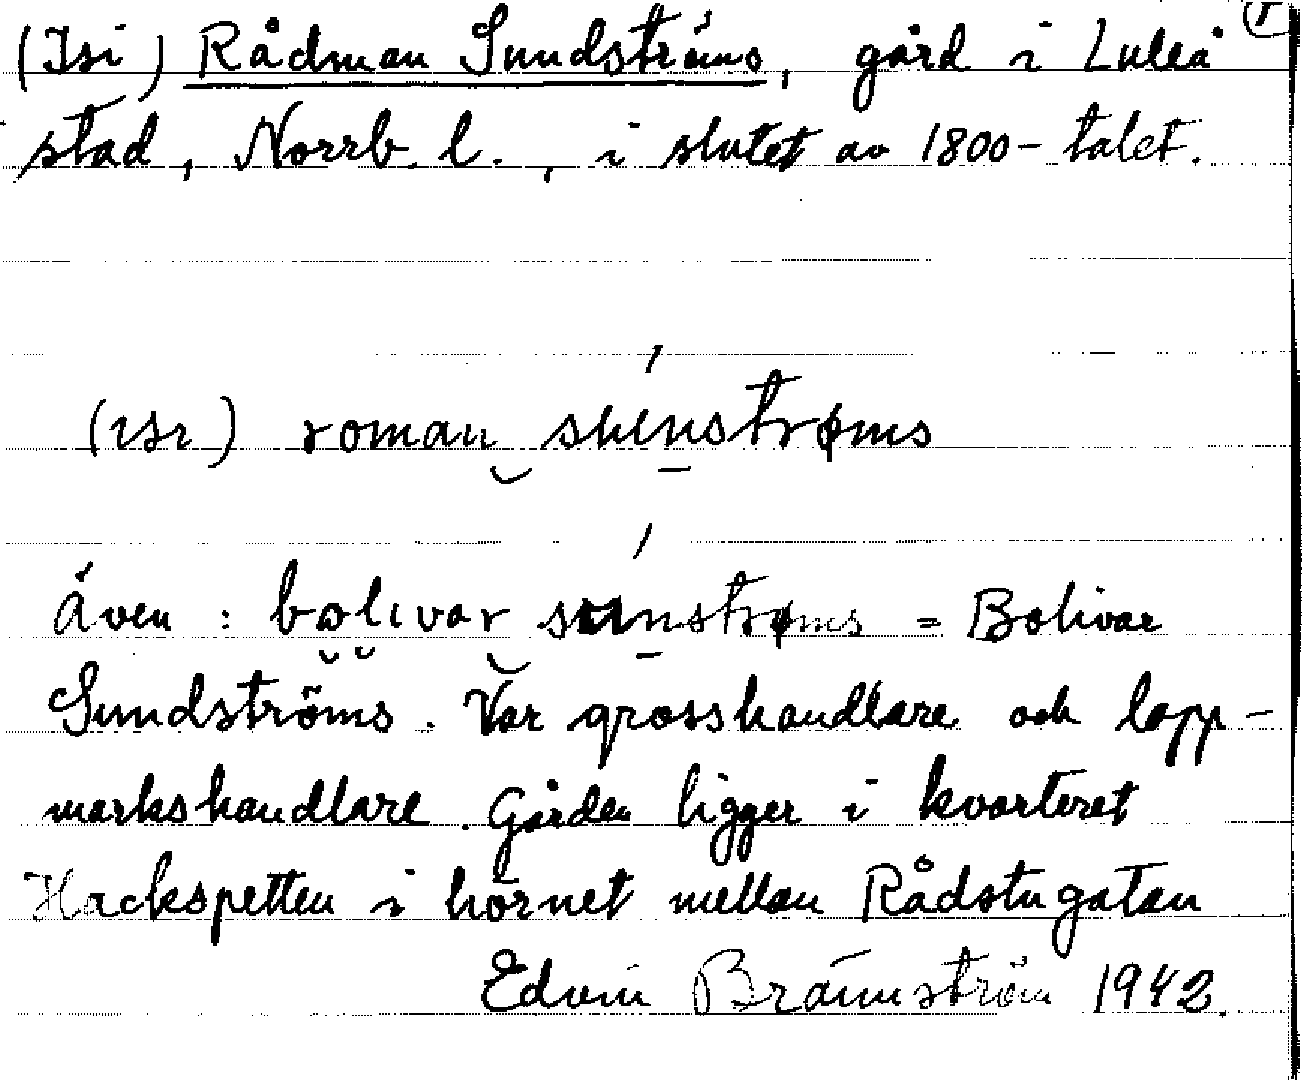 (Isi) Rådman Sundströms, gård i Luleå
stad, Norrb. l., i slutet av 1800-talet.
(ısı) roman sunstrøms
Även: bolıvar sunstrøms = Bolivar
Sundströms. Var grosshandlare och lapp-
markshandlare. Gården ligger i kvarteret
Hackspetten i hörnet mellan Rådstugatan
Edvin Brännström 1942.